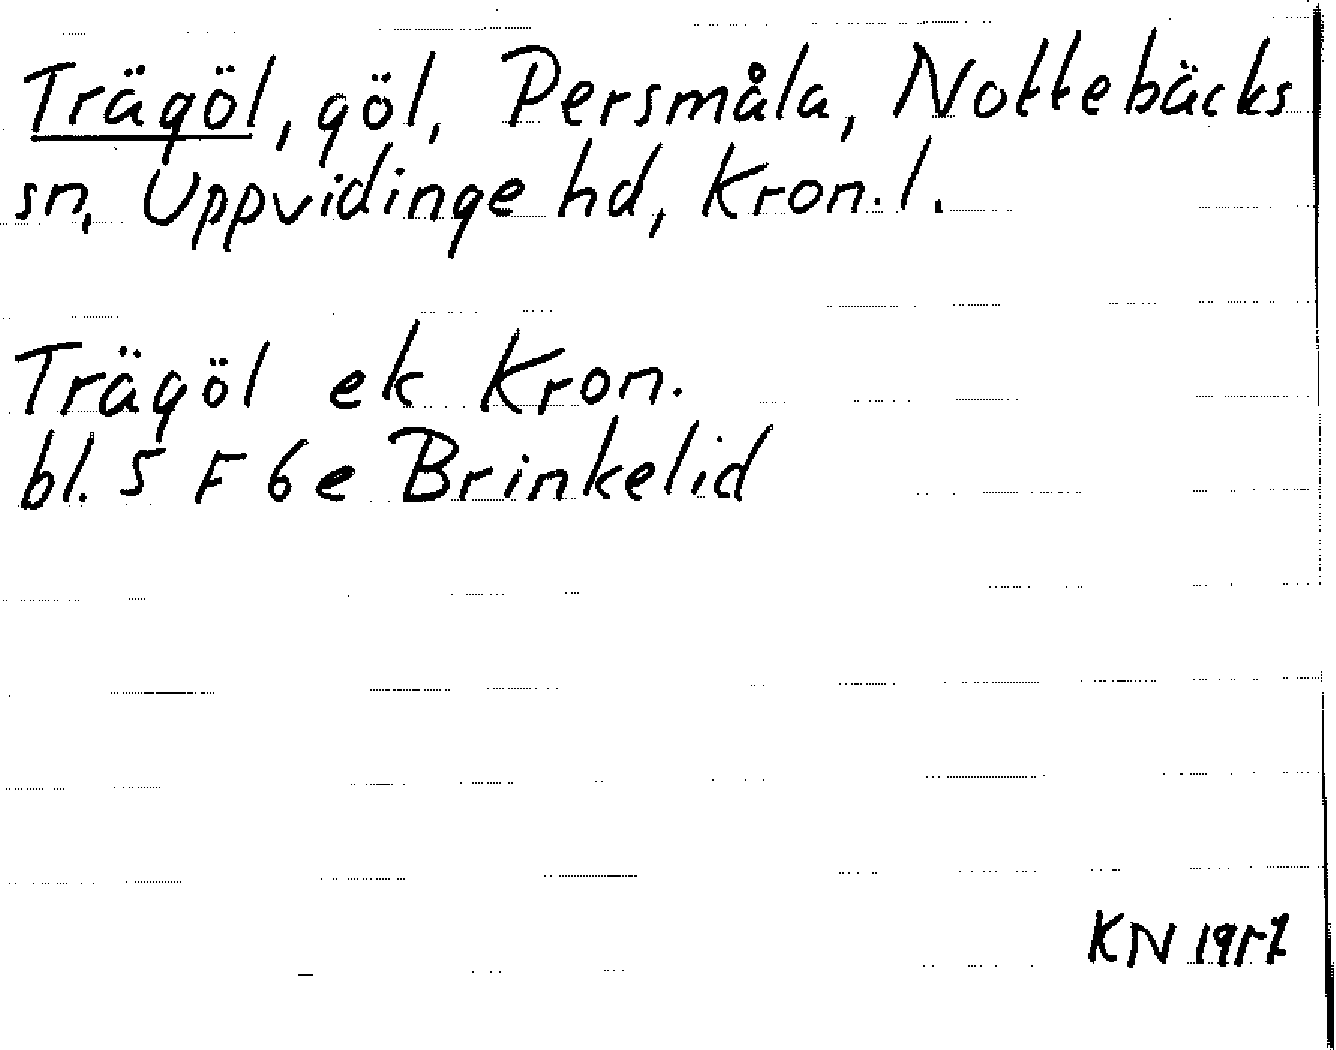 Trägöl, göl, Persmåla, Nottebäcks
sn, Uppvidinge hd, Kron. l.
Trägöl ek Kron.
bl. 5 F 6 e Brinkelid
KN